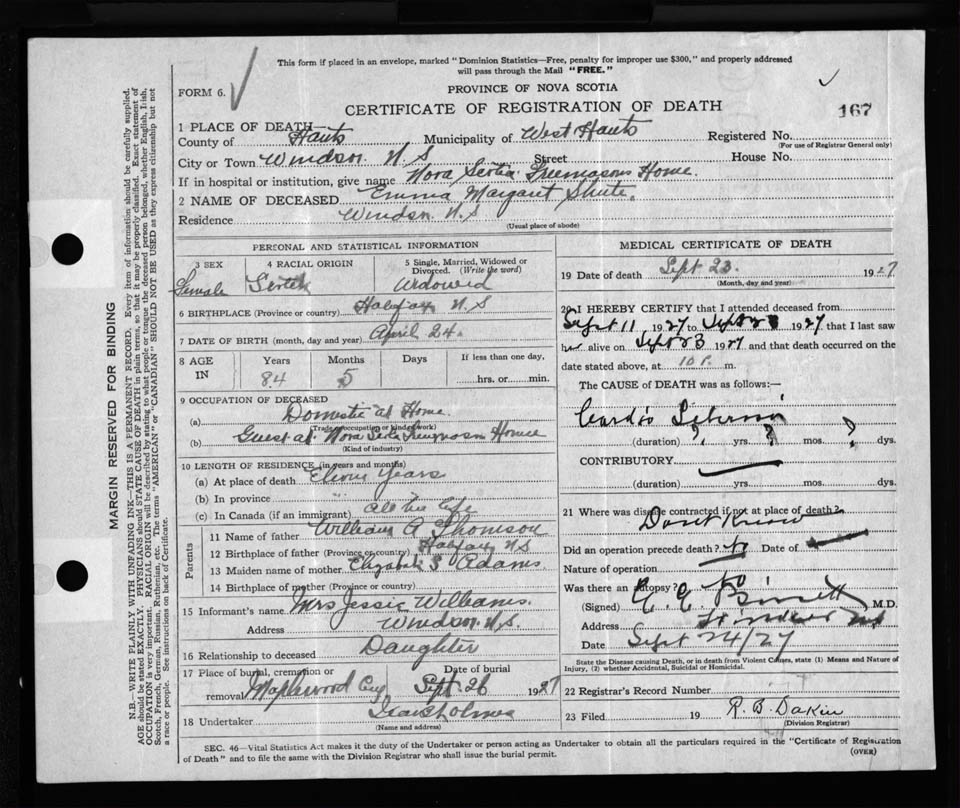 This form if placed in an envelope, marked "Dominion Statistics—Free, penalty for improper use $300," and properly addressed
will pass through the Mail "FREE."
FORM 6.
PROVINCE OF NOVA SCOTIA
CERTIFICATE OF REGISTRATION OF DEATH
167
1 PLACE OF DEATH—
County of Hants Municipality of West Hants Registered No.
(For use of Registrar General only)
City or Town Windsor N S Street House No.
If in hospital or institution, give name Nova Scotia Freemasons Home.
2 NAME OF DECEASED Emma Margaret Shute.
Residence Windsor N.S
(Usual place of abode)
PERSONAL AND STATISTICAL INFORMATION
3 SEX 4 RACIAL ORIGIN 5 Single, Married, Widowed or
Divorced. (Write the word)
Female Scotch Widowed
6 BIRTHPLACE (Province or country) Halifax N.S
7 DATE OF BIRTH (month, day and year) April 24.
8 AGE IN Years Months Days If less than one day,
84 5 hrs. or min.
9 OCCUPATION OF DECEASED
(a) Domestic at Home.
(Trade, occupation or kind of work)
(b) Guest at Nova Scotia Freemason Home
(Kind of industry)
10 LENGTH OF RESIDENCE (in years and months)
(a) At place of death Years
(b) In province " "
(c) In Canada (if an immigrant) all her life
Parents
11 Name of father William A Thomson
12 Birthplace of father (Province or country) Halifax N.S
13 Maiden name of mother Elizabeth S Adams
14 Birthplace of mother (Province or country)
15 Informant's name Mrs Jessie Williams.
Address Windsor. N.S.
16 Relationship to deceased Daughter
17 Place of burial, cremation or Date of burial
removal Maplewood Cey Sept. 26 1927
18 Undertaker
(Name and address)
MEDICAL CERTIFICATE OF DEATH
19 Date of death Sept 23. 1927
(Month, day and year)
20 I HEREBY CERTIFY that I attended deceased from
Sept 11 1927 to Sept 23 1927 that I last saw
her alive on Sept 23 1927 and that death occurred on the
date stated above, at 10 P. m.
The CAUSE of DEATH was as follows:—
Cardio
(duration) ? yrs. ? mos. ? dys.
CONTRIBUTORY
(duration) yrs. mos. dys.
21 Where was disease contracted if not at place of death?
Dont Know
Did an operation precede death? No Date of
Nature of operation
Was there an autopsy? No
(Signed) M.D.
Address Windsor NS
Date Sept 24/27
State the Disease causing Death, or in death from Violent Causes, state (1) Means and Nature of
Injury, (2) whether Accidental, Suicidal or Homicidal.
22 Registrar's Record Number
23 Filed 19 R. B. Dakin
(Division Registrar)
SEC. 46—Vital Statistics Act makes it the duty of the Undertaker or person acting as Undertaker to obtain all the particulars required in the "Certificate of Registration
of Death" and to file the same with the Division Registrar who shall issue the burial permit.
(OVER)
MARGIN RESERVED FOR BINDING
N.B.—WRITE PLAINLY WITH UNFADING INK—THIS IS A PERMANENT RECORD. Every item of information should be carefully supplied.
AGE should be stated EXACTLY. PHYSICIANS should STATE CAUSE OF DEATH in plain terms, so that it may be properly classified. Exact statement of
OCCUPATION is very important. RACIAL ORIGIN will be described by stating to what people or tongue the deceased person belonged, whether English, Irish,
Scotch, French, German, Russian, Ruthenian, etc. The terms "AMERICAN" or "CANADIAN" SHOULD NOT BE USED as they express citizenship but not
a race or people. See instructions on back of Certificate.